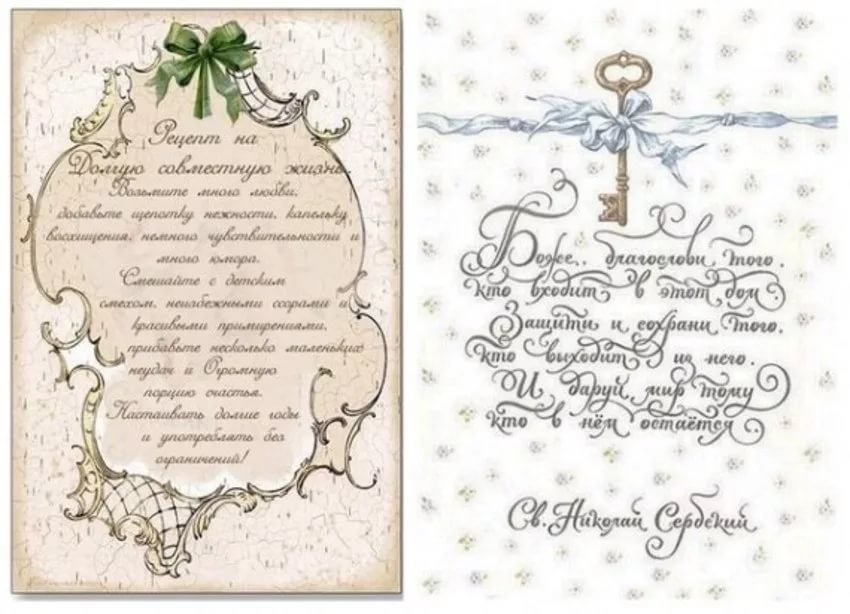 Рецепт на
Долгую совместную жизнь.
Возьмите много любви,
добавьте щепотку нежности, капельку
восхищения, немного чувствительности и
много юмора.
Смешайте с детским
смехом, неизбежными ссорами и
красивыми примирениями,
прибавьте несколько маленьких
неудач и Огромную
порцию счастья.
Настаивать долгие годы
и употреблять без
ограничений!
Боже, благослови того,
кто входит в этот дом.
Защити и сохрани того,
кто выходит из него.
И даруй мир тому
кто в нём остаётся
Св. Николай Сербский